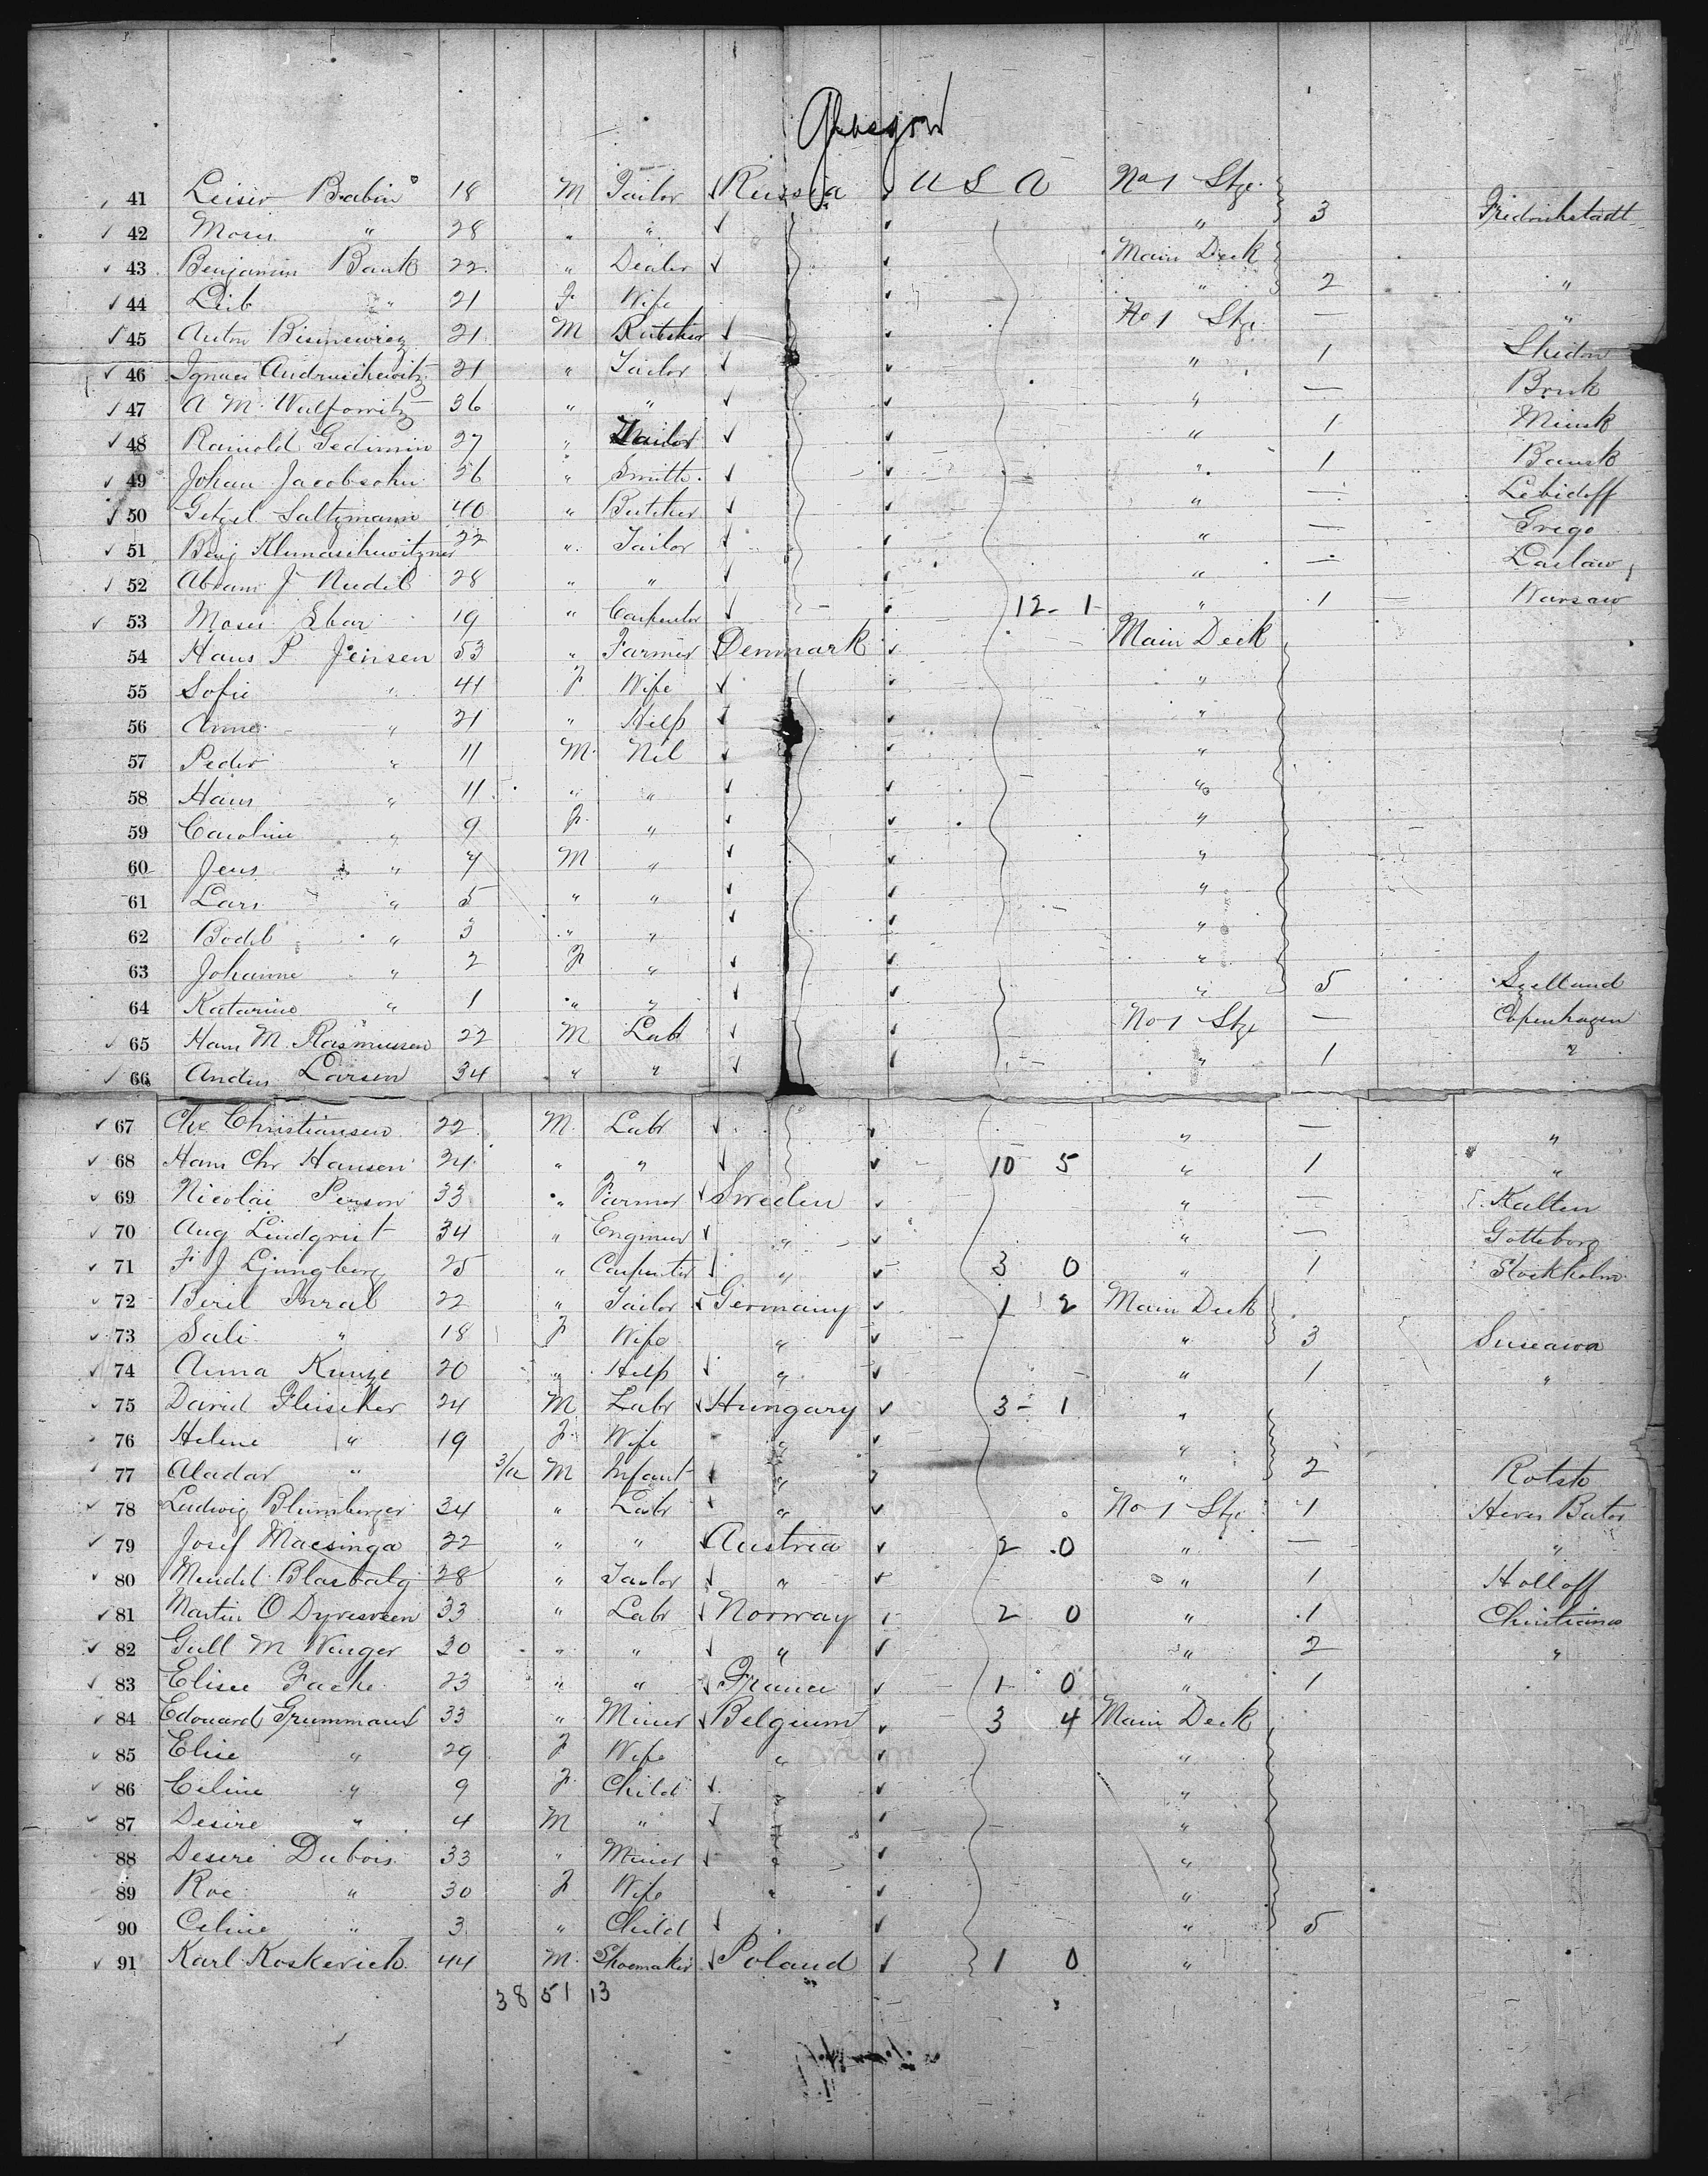 Glasgow
41 Leiser Rabin 18 M Tailor Russia U S A No 1 Stge
42 Moses " 28 " " " 3 Fridrichstadt
43 Benjamin Bank 22 " Dealer Main Deck
44 Leib " 21 F Wife " 2 "
45 Anton 21 M Butcher No 1 Stge — "
46 Ignaes Andruschewitz 21 " Tailor " 1
47 A M Wulfowitz 36 " " " —
48 Rainold Gedimin 27 " Tailor " 1 Minsk
49 Johan Jacobsohn 36 " Smith " 1 Bausk
50 Getzel Saltzmann 40 " Butcher " — Lebidoff
51 Benj 22 " Tailor " — Grego
52 Abram J Nudel 28 " " " — Laslaw
53 Moses 19 " Carpenter 12 - 1 " 1 Warsaw
54 Hans P Jensen 53 " Farmer Denmark Main Deck
55 Sofie " 41 F Wife "
56 Anne " 21 " Help "
57 Peder " 11 M Nil "
58 Hans " 11 " " "
59 Caroline " 9 F " "
60 Jens " 7 M " "
61 Lars " 5 " " "
62 Bodil " 3 " " "
63 Johanne " 2 F " "
64 Katarine " 1 " " " 5 Sjelland
65 Hans M. Rasmussen 22 M Labr No 1 Stge — Copenhagen
66 Anders Larsen 34 " " " 1 "
67 Chr Christiansen 22 M Labr " — "
68 Hans Chr Hansen 24 " " 10 5 " 1 "
69 Nicolai Person 33 " Farmer Sweden " — Kalten
70 Aug Lindqvist 34 " Engineer " " — Gotteborg
71 F J Ljungberg 25 " Carpenter " 3 0 " 1 Stockholm
72 Beril 22 " Tailor Germany 1 2 Main Deck
73 Sali " 18 F Wife " " 3
74 Anna Kunze 20 " Help " " 1 "
75 David Fleischer 24 M Labr Hungary 3 - 1 "
76 Helene " 19 F Wife " "
77 Aladar " 3/12 M Infant " " 2
78 Ludwig Blumberger 34 " Labr " No 1 Stge 1
79 Josef Macsinga 22 " " Austria 2 0 " — "
80 Mendel Blasbalg 28 " Tailor " " 1 Holloff
81 Martin O Dyresveen 33 " Labr Norway 2 0 " 1 Christiania
82 Gull M Winger 20 " " " " 2 "
83 Elisee Fache 23 " " France 1 0 " 1
84 Edouard Grummaux 33 " Miner Belgium 3 4 Main Deck
85 Elise " 29 F Wife " "
86 Celine " 9 F Child " "
87 Desire " 4 M " " "
88 Desire Dubois 33 " Miner " "
89 " 30 F Wife " "
90 Celine " 3 " Child " 5
91 Karl 44 M Shoemaker Poland 1 0 "
38 51 13